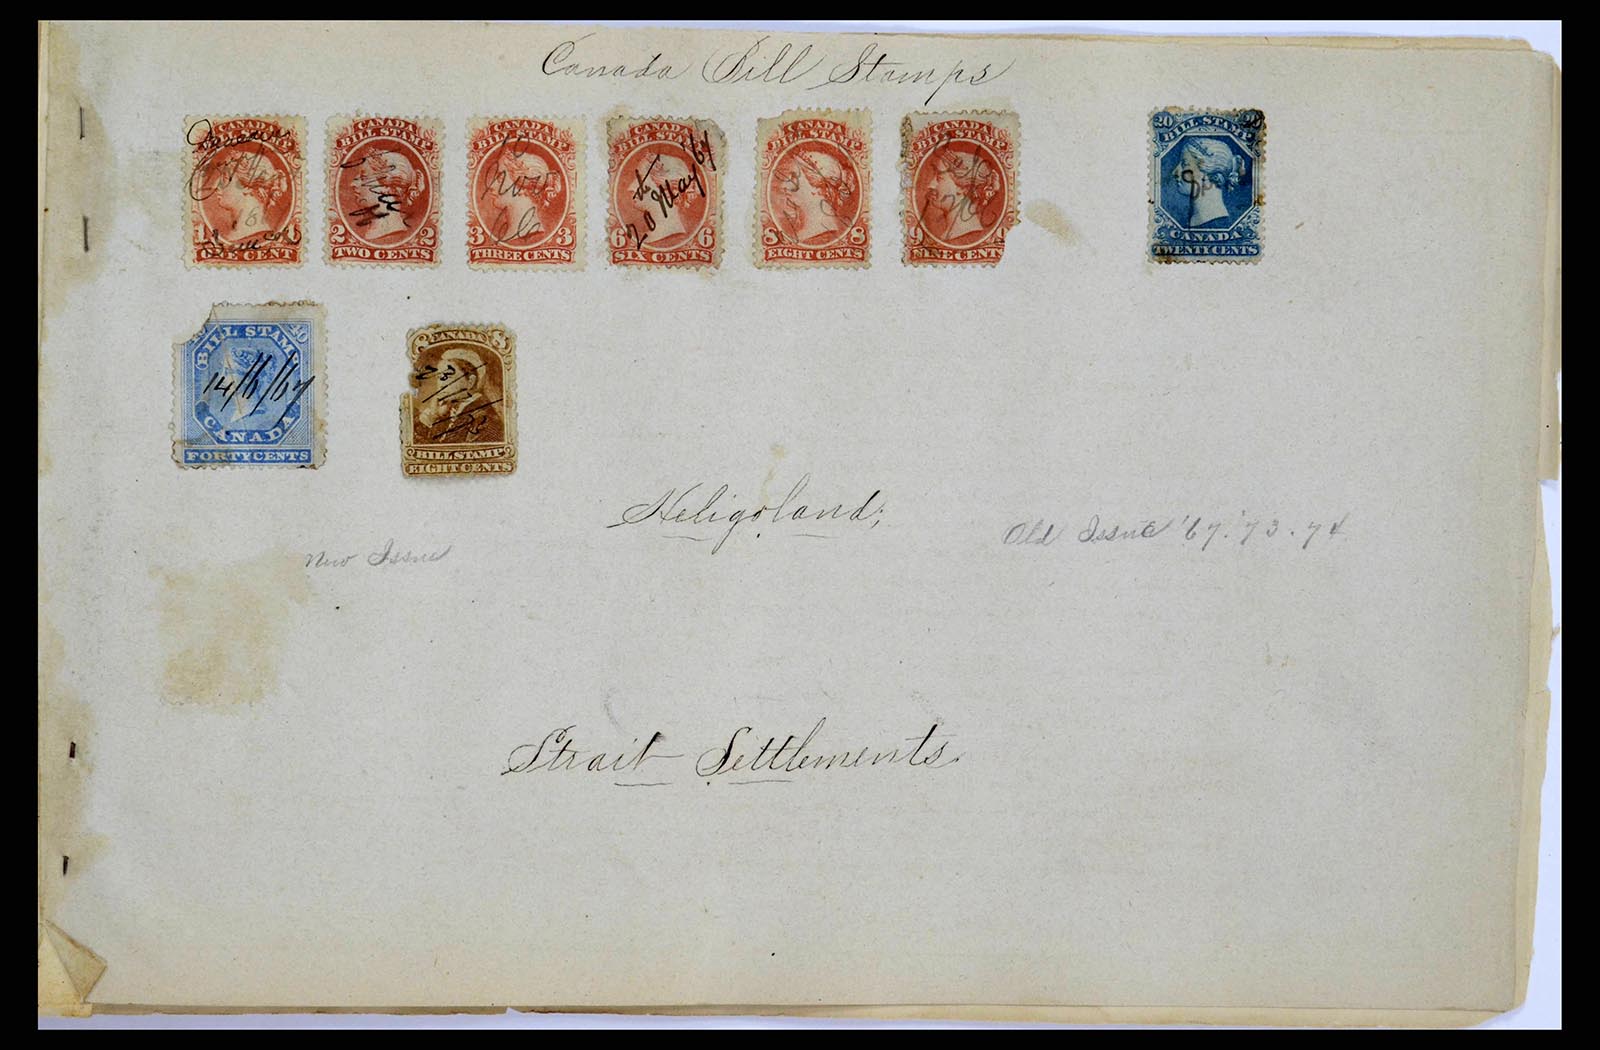 Canada Bill Stamps
CANADA
ONE CENT
CANADA
BILL STAMP
2 2
TWO CENTS
CANADA
BILL STAMP
10
Nov
66
3 3
THREE CENTS
CANADA
BILL STAMP
20 May 64
6 6
SIX CENTS
CANADA
BILL STAMP
8 8
EIGHT CENTS
CANADA
BILL STAMP
Sep
9
NINE CENT
20 20
BILL STAMP
CANADA
TWENTY CENTS
BILL STAMP
14/6/67
CANADA
FORTY CENTS
8 CANADA 8
23/12/73
BILL STAMP
EIGHT CENTS
Heligoland;
New Issue
Old Issue '67. '73. 74
Strait Settlements